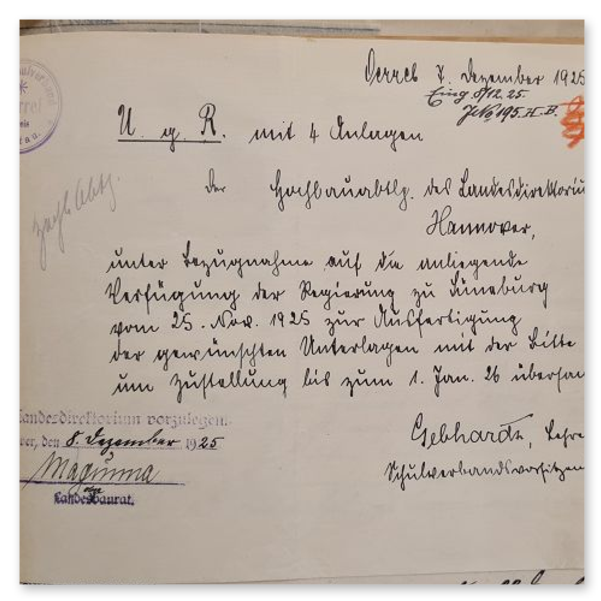 Derreb 7. Dezember 1925
Eing. 8/12. 25.
J.No 195. H. B.
U. g. R. mit 4 Anlagen
der Hochbauabtlg. des Landesdirektoriu
Hannover,
unter Bezugnahme auf die anliegende
Verfügung der Regierung zu Lüneburg
vom 25. Nov. 1925 zur Ausfertigung
der gewünschten Unterlagen mit der Bitte
um Zustellung bis zum 1. Jan. 26 übersan
Landesdirektorium vorzulegen.
er, den 8. Dezember 1925
Magunna
Landesbaurat.
Gebhardt, Lehre
Schulverbandsvorsitzen